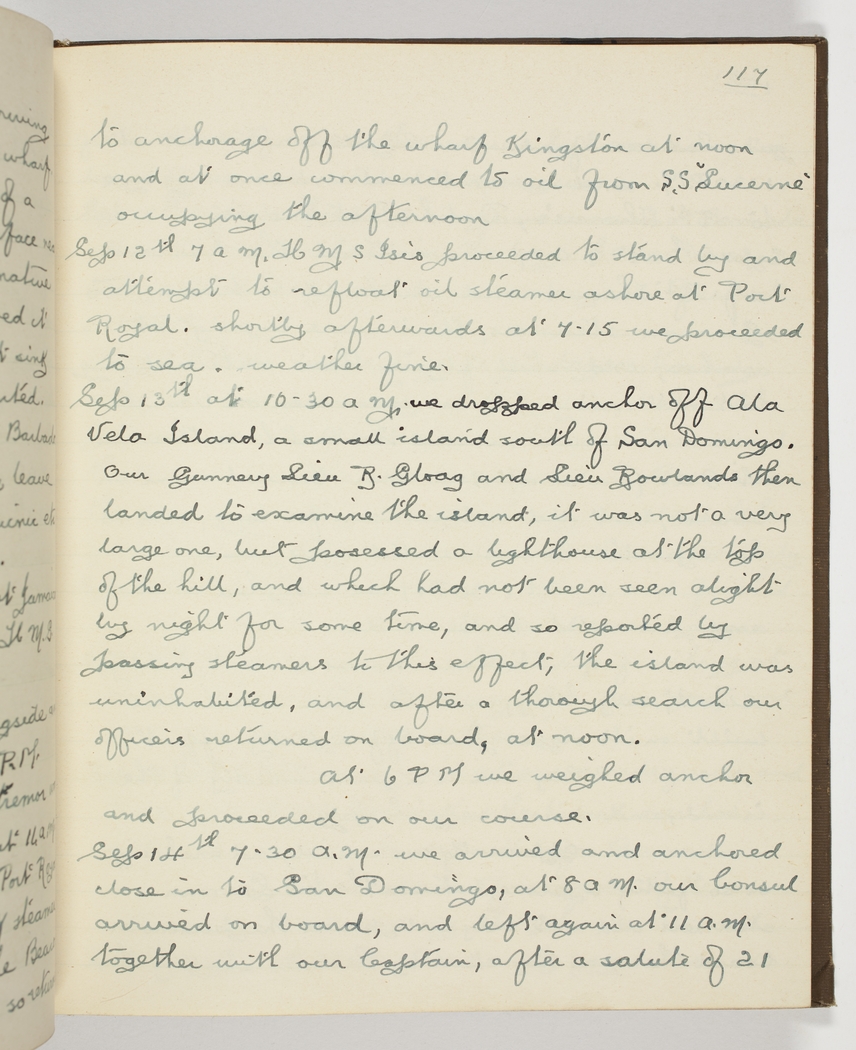 117
to anchorage off the wharf Kingston at noon
and at once commenced to oil from S.S. "Lucerne"
occupying the afternoon
Sep 12th 7 a m. H M S Isis proceeded to stand by and
attempt to refloat oil steamer ashore at Port
Royal. shortly afterwards at 7-15 we proceeded
to sea. weather fine.
Sep 13th at 10-30 a m. we dropped anchor off Ala
Vela Island, a small island south of San Domingo.
Our Gunnery Lieu R. Gloag and Lieu Rowlands then
landed to examine the island, it was not a very
large one, but posessed a lighthouse at the top
of the hill, and which had not been seen alight
by night for some time, and so reported by
passing steamers to this effect, the island was
uninhabited, and after a thorough search our
officers returned on board, at noon.
At 6 P M we weighed anchor
and proceeded on our course.
Sep 14th 7-30 A.M. we arrived and anchored
close in to San Domingo, at 8 a m. our Consul
arrived on board, and left again at 11 a.m.
together with our Captain, after a salute of 21
wharf
of a
sing
Barbad
leave
H M S
P.M.
at 11 a m
Port R
steame
so retur